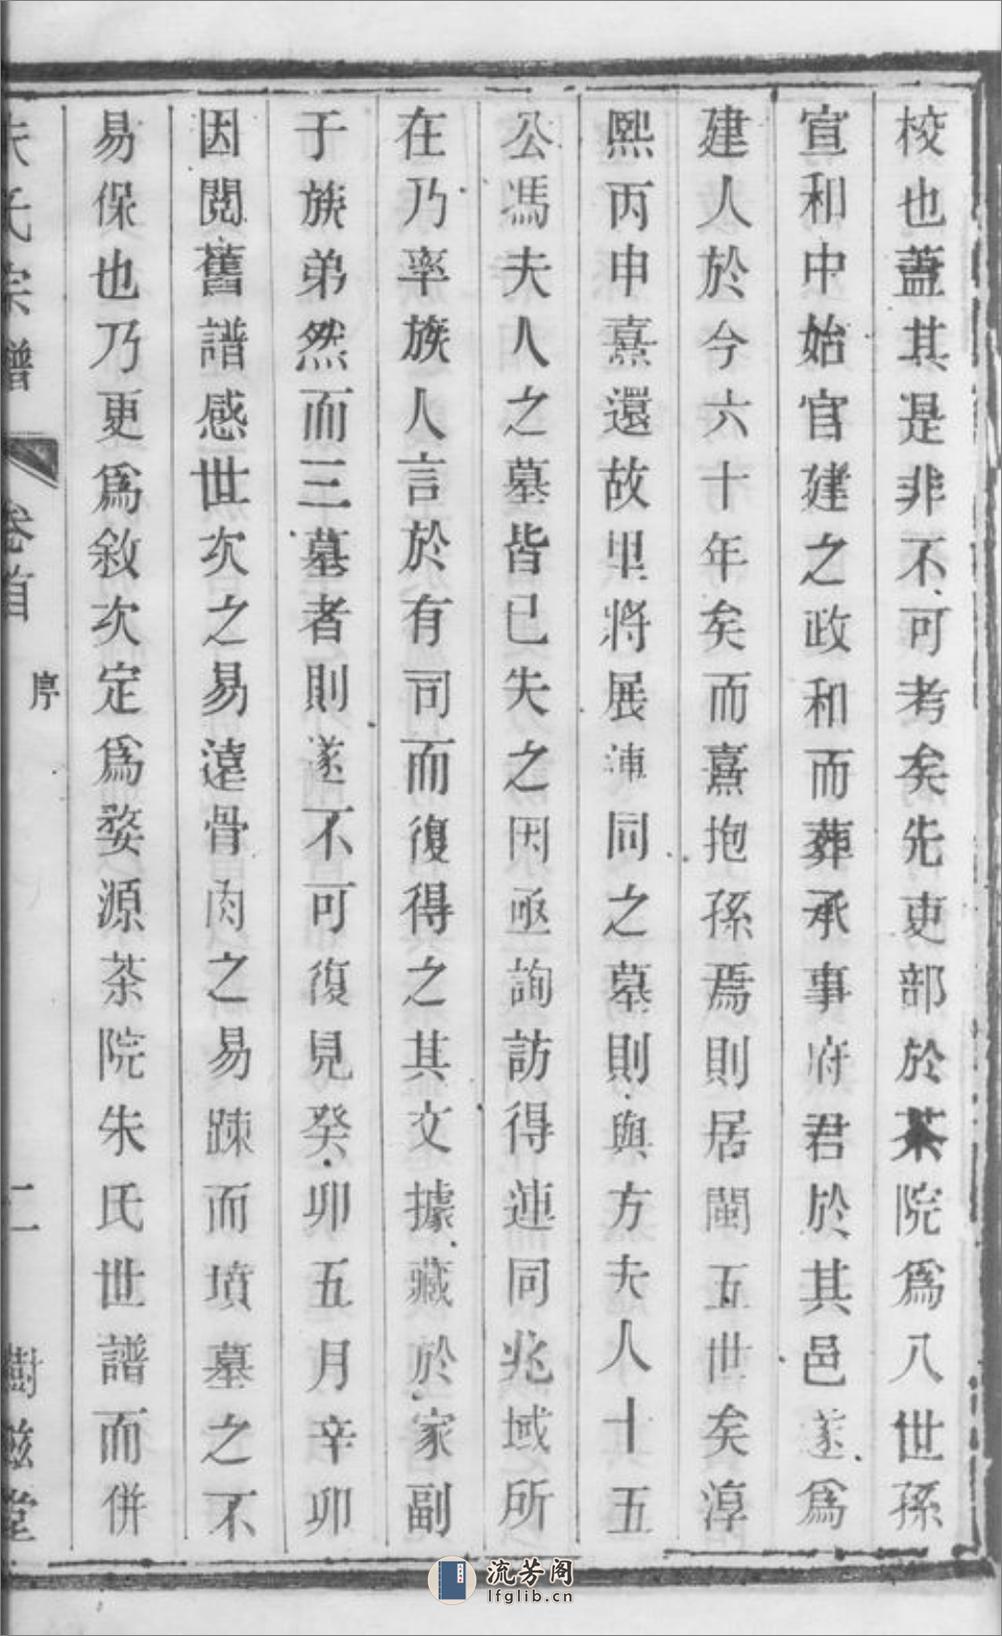 校也蓋其是非不可考矣先吏部於茶院爲八世孫
宣和中始官建之政和而葬承事府君於其邑遂爲
建人於今六十年矣而熹抱孫焉則居閩五世矣淳
熙丙申熹還故里將展連同之墓則與方夫人十五
公馮夫人之墓皆已失之因亟詢訪得連同兆域所
在乃率族人言於有司而復得之其文據藏於家副
于族弟然而三墓者則遂不可復見癸卯五月辛卯
因閱舊譜感世次之易遠骨肉之易踈而墳墓之不
易保也乃更爲敘次定爲婺源茶院朱氏世譜而併
朱氏宗譜 卷首 序 二 樹滋堂
流芳阁
lfglib.cn